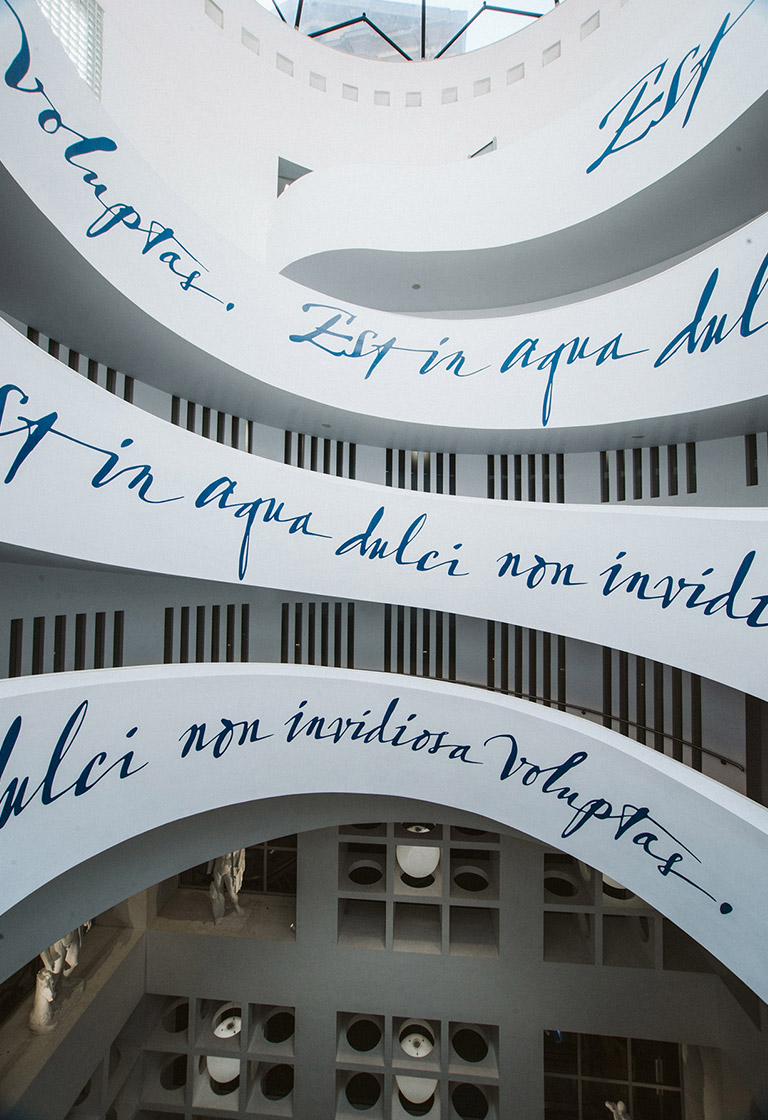 Est
voluptas. Est in aqua dul
st in aqua dulci non invidi
dulci non invidiosa voluptas.